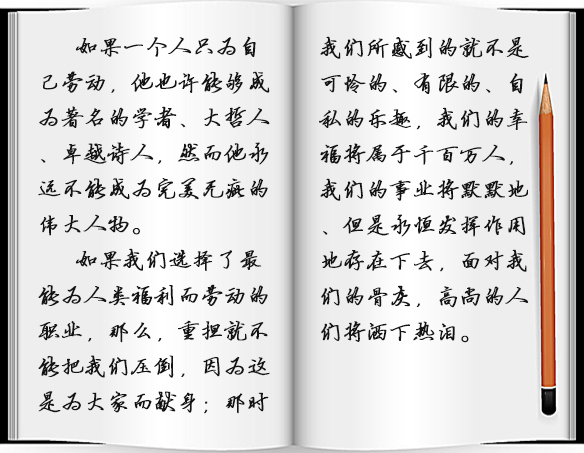 如果一个人只为自
己劳动，他也许能够成
为著名的学者、大哲人
、卓越诗人，然而他永
远不能成为完美无疵的
伟大人物。
如果我们选择了最
能为人类福利而劳动的
职业，那么，重担就不
能把我们压倒，因为这
是为大家而献身；那时
我们所感到的就不是
可怜的、有限的、自
私的乐趣，我们的幸
福将属于千百万人，
我们的事业将默默地
、但是永恒发挥作用
地存在下去，面对我
们的骨灰，高尚的人
们将洒下热泪。